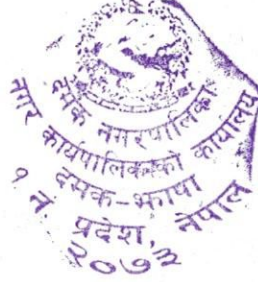 दमक नगरपालिका
नगर कार्यपालिकाको कार्यालय
दमक-झापा
१ नं. प्रदेश, नेपाल
२०७३